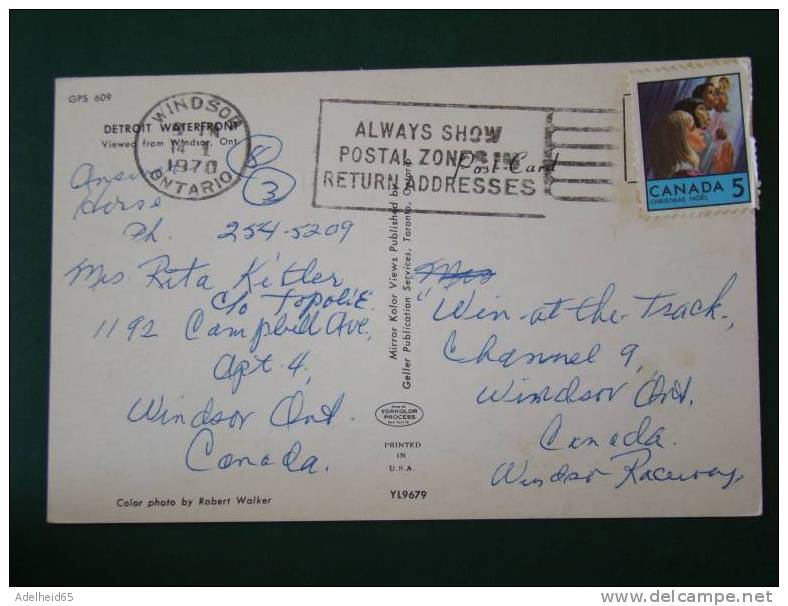 GPS 609
DETROIT WATERFRONT
Viewed from Windsor, Ont.
WINDSOR
14 I
1970
ONTARIO
8
3
ALWAYS SHOW
POSTAL ZONES IN
RETURN ADDRESSES
Post Card
CANADA 5
CHRISTMAS NOËL
Horse
Ph. 254-5209
Mrs Rita Kitler
c/o Topolie
1192 Campbell Ave,
Apt. 4,
Windsor Ont.
Canada.
Color photo by Robert Walker
Mirror Kolor Views Published by
Geller Publication Services, Toronto, Ontario
YORKOLOR
PROCESS
PRINTED
IN
U.S.A.
YL9679
Mrs
"Win-at-the-Track,
Channel 9,
Windsor Ont,
Canada.
Windsor Raceway,
Adelheid65
delcampe.net